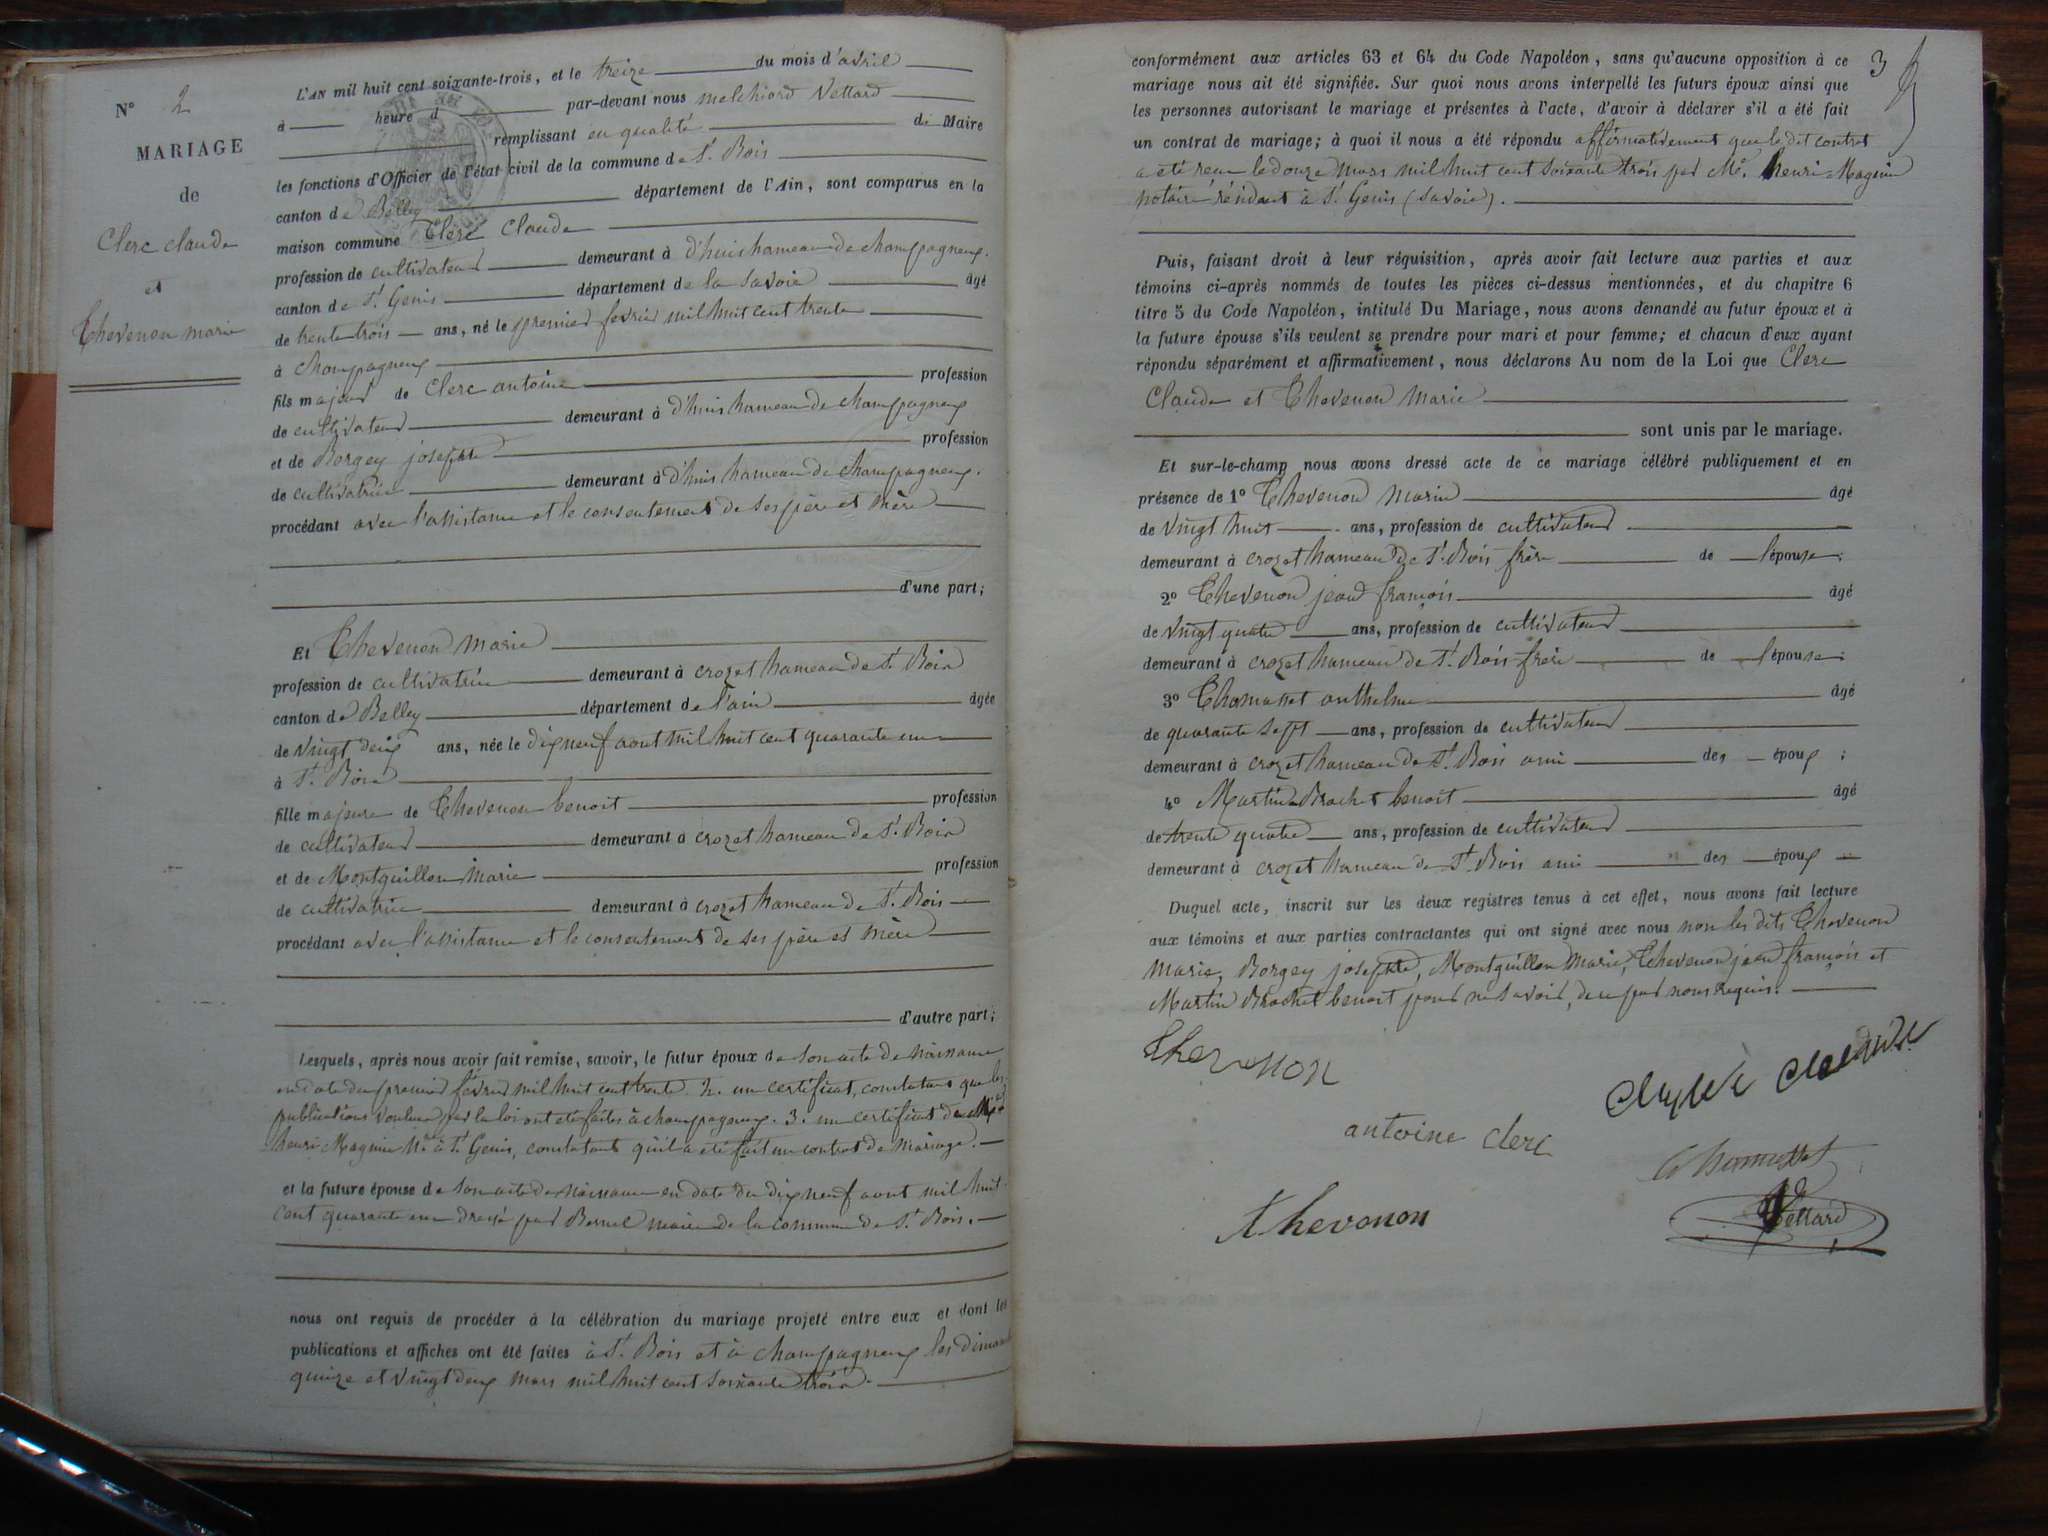 N° 2
MARIAGE
de
Clerc claude
et
Thevenon marie
L'AN mil huit cent soixante-trois, et le treize du mois d'avril
à heure d par-devant nous melchiord Vettard
remplissant en qualité de Maire
les fonctions d'Officier de l'état civil de la commune de St. Bois
canton de Belley département de l'Ain, sont comparus en la
maison commune Clerc Claude
profession de cultivateur demeurant à d'huis hameau de champagneux.
canton de St. Genis département de la Savoie âgé
de trente trois ans, né le premier fevrier mil huit cent trente
à Champagneux
fils majeur de Clerc antoine profession
de cultivateur demeurant à d'huis hameau de champagneux
et de Borgey josephte profession
de cultivatrice demeurant à d'huis hameau de champagneux.
procédant avec l'assistance et le consentement de ses père et mère
d'une part;
Et Thevenon marie
profession de cultivatrice demeurant à crozet hameau de St. Bois
canton de Belley département de l'ain âgée
de vingt deux ans, née le dix neuf aout mil huit cent quarante un
à St. Bois
fille majeure de Thevenon benoit profession
de cultivateur demeurant à crozet hameau de St. Bois
et de Montguillon Marie profession
de cultivatrice demeurant à crozet hameau de St. Bois
procédant avec l'assistance et le consentement de ses père et mère
d'autre part;
Lesquels, après nous avoir fait remise, savoir, le futur époux de son acte de naissance
en date du premier fevrier mil huit cent trente 2. un certificat, constatant que les
publications voulues par la loi ont été faites à champagneux. 3. un certificat de Me
henri Magnin Nre à St. Genis, constatant qu'il a été fait un contrat de mariage.
et la future épouse de son acte de naissance en date du dix neuf aout mil huit
cent quarante un dressé par Bernel maire de la commune de St. Bois.
nous ont requis de procéder à la célébration du mariage projeté entre eux et dont les
publications et affiches ont été faites à St. Bois et à champagneux les diman
quinze et vingt deux mars mil huit cent soixante trois.
3
conformément aux articles 63 et 64 du Code Napoléon, sans qu'aucune opposition à ce
mariage nous ait été signifiée. Sur quoi nous avons interpellé les futurs époux ainsi que
les personnes autorisant le mariage et présentes à l'acte, d'avoir à déclarer s'il a été fait
un contrat de mariage; à quoi il nous a été répondu affirmativement que le dit contrat
a été recu le douze mars mil huit cent soixante trois par Me. henri Magnin
notaire résidant à St. Genis (Savoie).
Puis, faisant droit à leur réquisition, après avoir fait lecture aux parties et aux
témoins ci-après nommés de toutes les pièces ci-dessus mentionnées, et du chapitre 6
titre 5 du Code Napoléon, intitulé Du Mariage, nous avons demandé au futur époux et à
la future épouse s'ils veulent se prendre pour mari et pour femme; et chacun d'eux ayant
répondu séparément et affirmativement, nous déclarons Au nom de la Loi que Clerc
Claude et Thevenon Marie
sont unis par le mariage.
Et sur-le-champ nous avons dressé acte de ce mariage célébré publiquement et en
présence de 1° Thevenon Marin âgé
de vingt huit ans, profession de cultivateur
demeurant à crozet hameau de St. Bois frère de l'épouse;
2° Thevenon jean françois âgé
de vingt quatre ans, profession de cultivateur
demeurant à crozet hameau de St. Bois frère de l'épouse;
3° Thomasset anthelme âgé
de quarante sept ans, profession de cultivateur
demeurant à crozet hameau de St. Bois ami des époux ;
4° Martin Brochet benoit âgé
de trente quatre ans, profession de cultivateur
demeurant à crozet hameau de St. Bois ami des époux
Duquel acte, inscrit sur les deux registres tenus à cet effet, nous avons fait lecture
aux témoins et aux parties contractantes qui ont signé avec nous non les dits Thevenon
Marie, Borgey josephte, Montguillon Marie, Thevenon jean françois et
Martin Brochet benoit pour ne savoir, de ce par nous requis.
Thevenon
antoine clerc
Thomasset
thevenon
Vettard